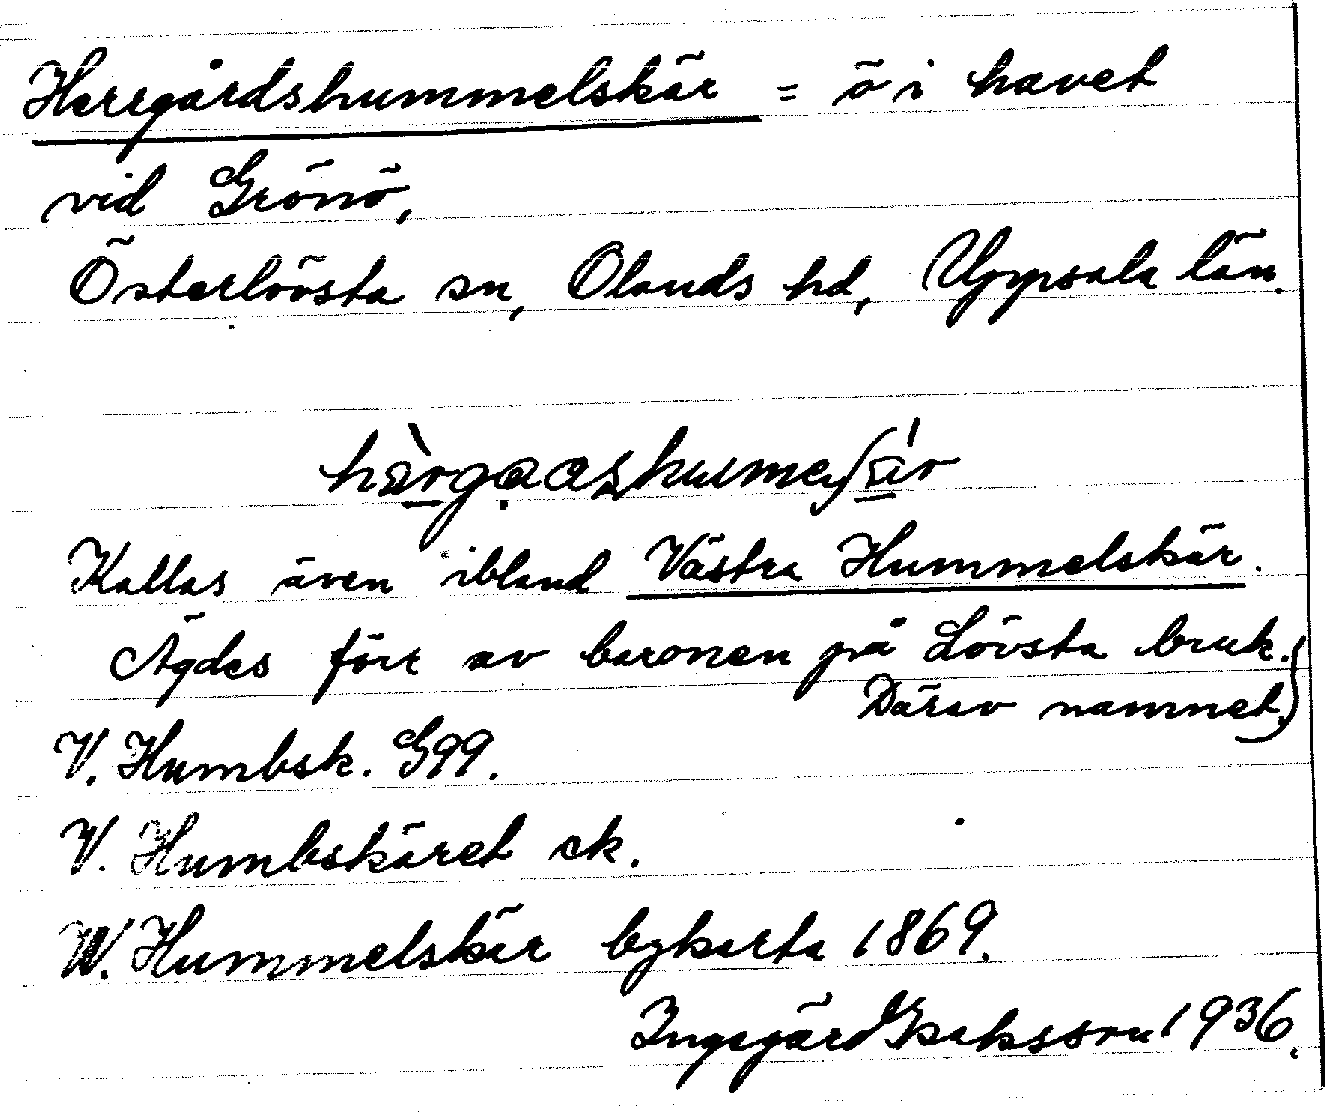 Herrgårdshummelskär = ö i havet
vid Grönö,
Österlövsta sn, Olands hd, Uppsala län.
Kallas även ibland Västra Hummelskär.
Ägdes förr av baronen på Lövsta bruk.
Därav namnet.
V. Humbsk. G99.
V. Humbskäret ek.
W. Hummelskär bykarta 1869.
Ingegärd Isaksson 1936.